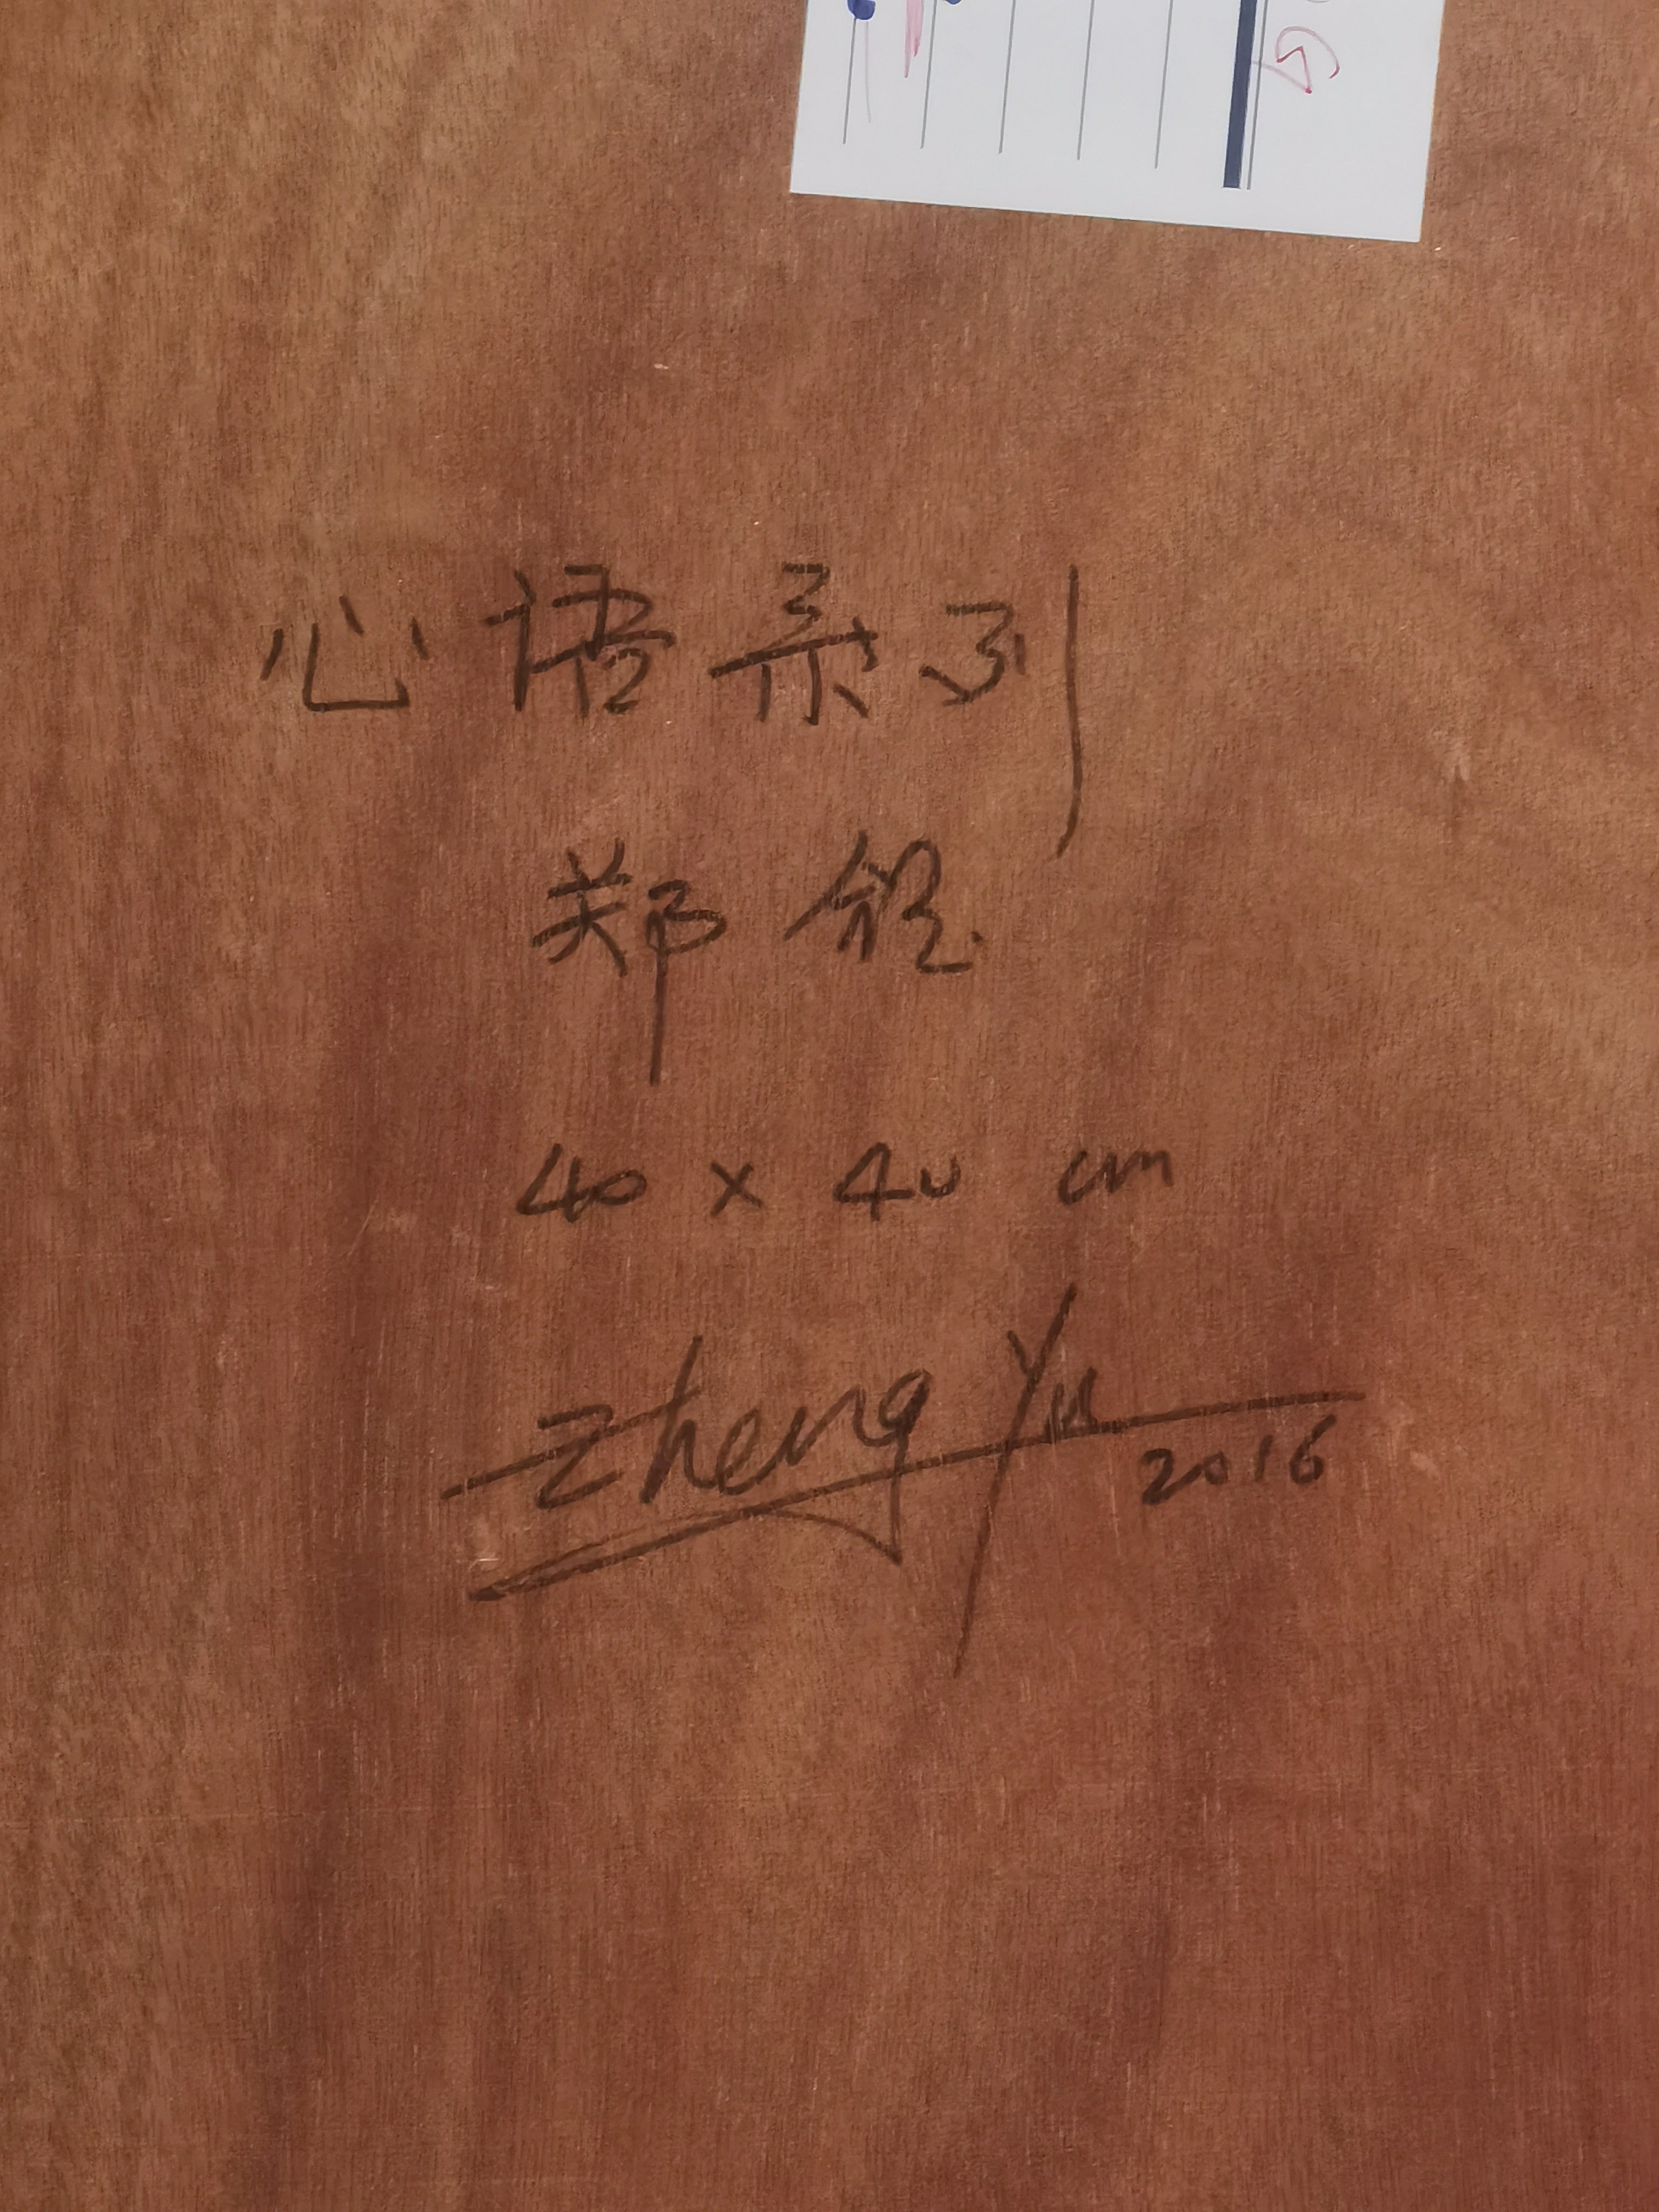 心语系列
郑
40 x 40 cm
Zheng Yu
2016